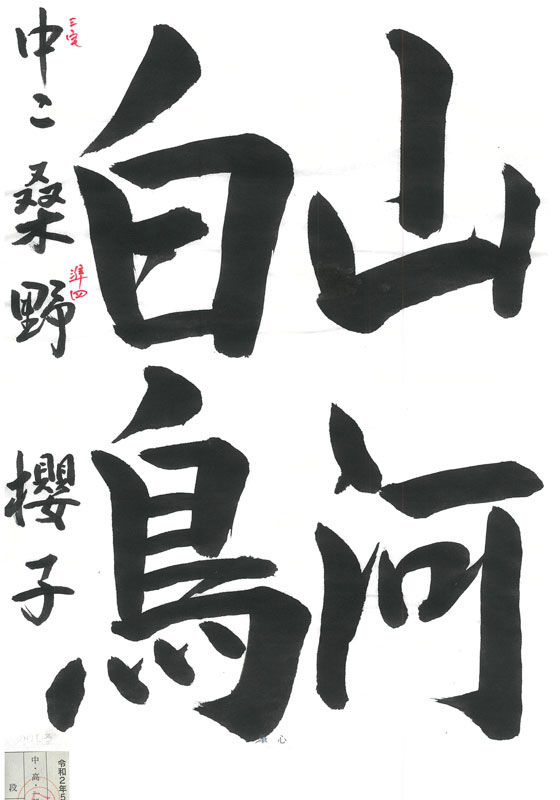 山河
白鳥
中二 桑野 櫻子
三宅
準四
心
令和2年5
中・高・
段